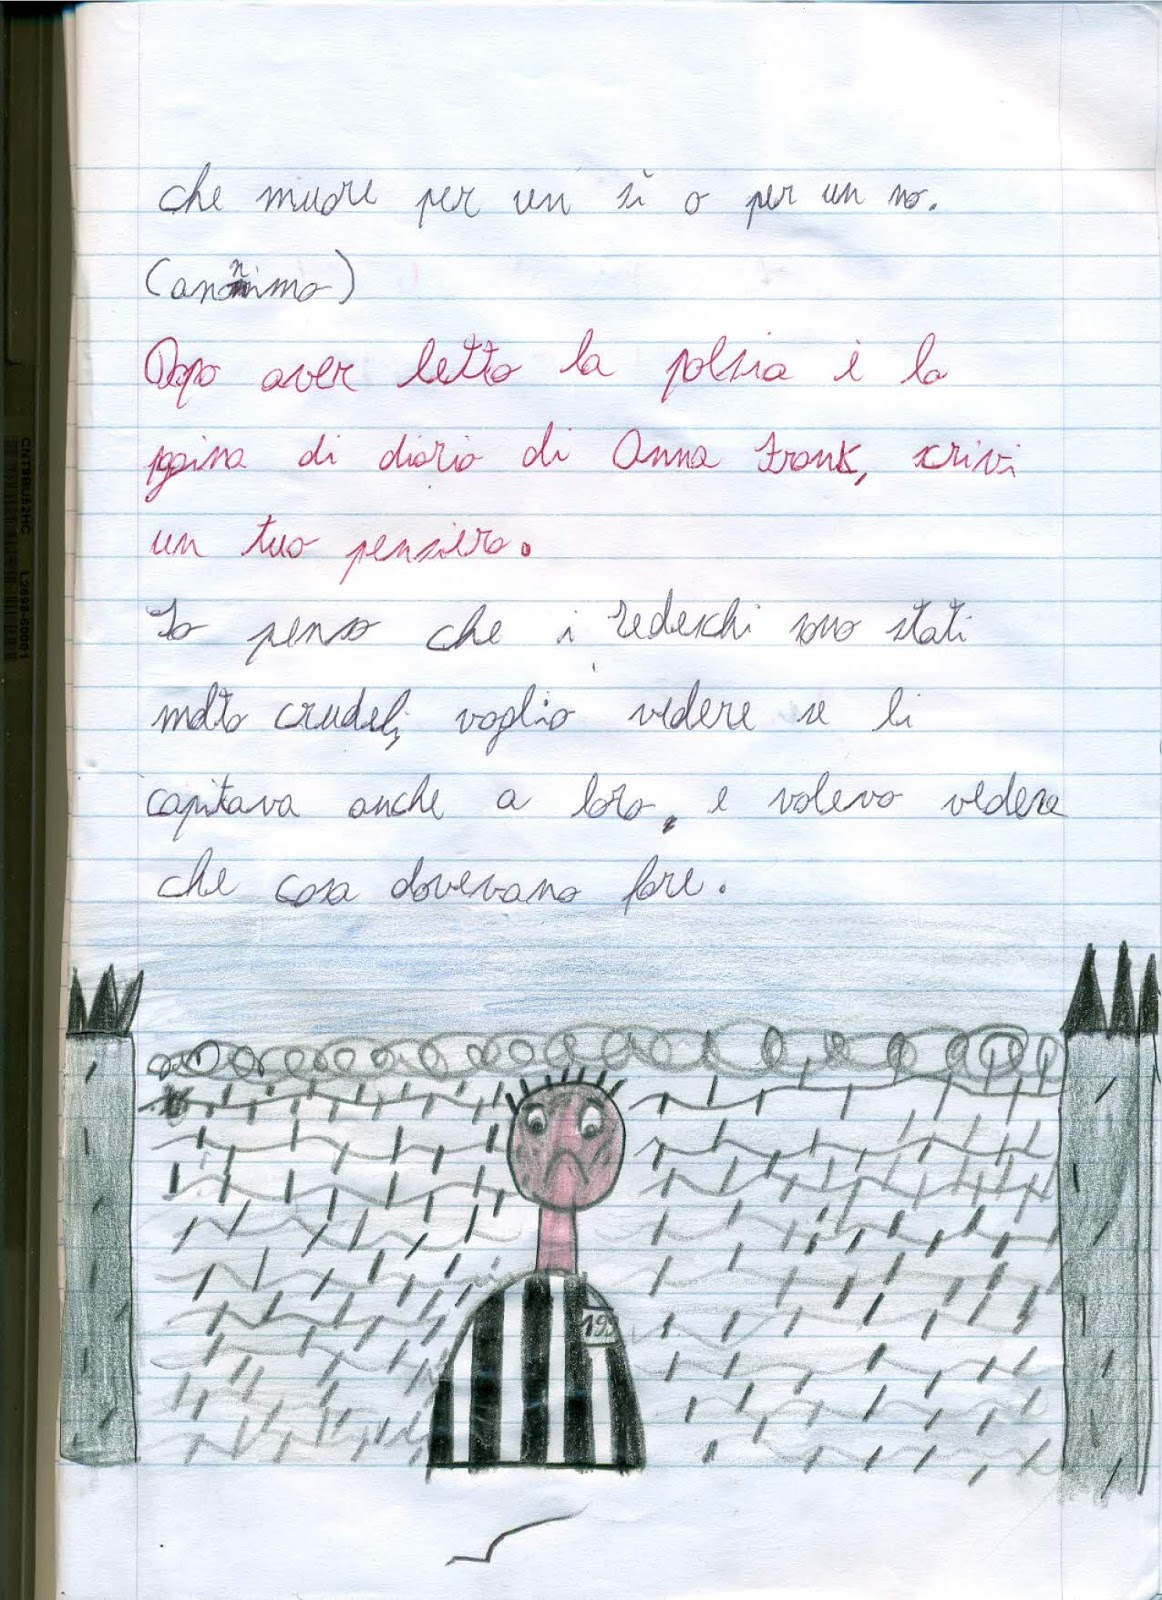 che muore per un sì o per un no.
(anonimo)
Dopo aver letto la polsia è la
pgina di diario di Anna Frank, scrivi
un tuo pensiero.
Io penso che i tedeschi sono stati
molto crudeli, voglio vedere se li
capitava anche a loro, e volevo vedere
che cosa dovevano fare.
199
CNT9BU52HC L2698-60001